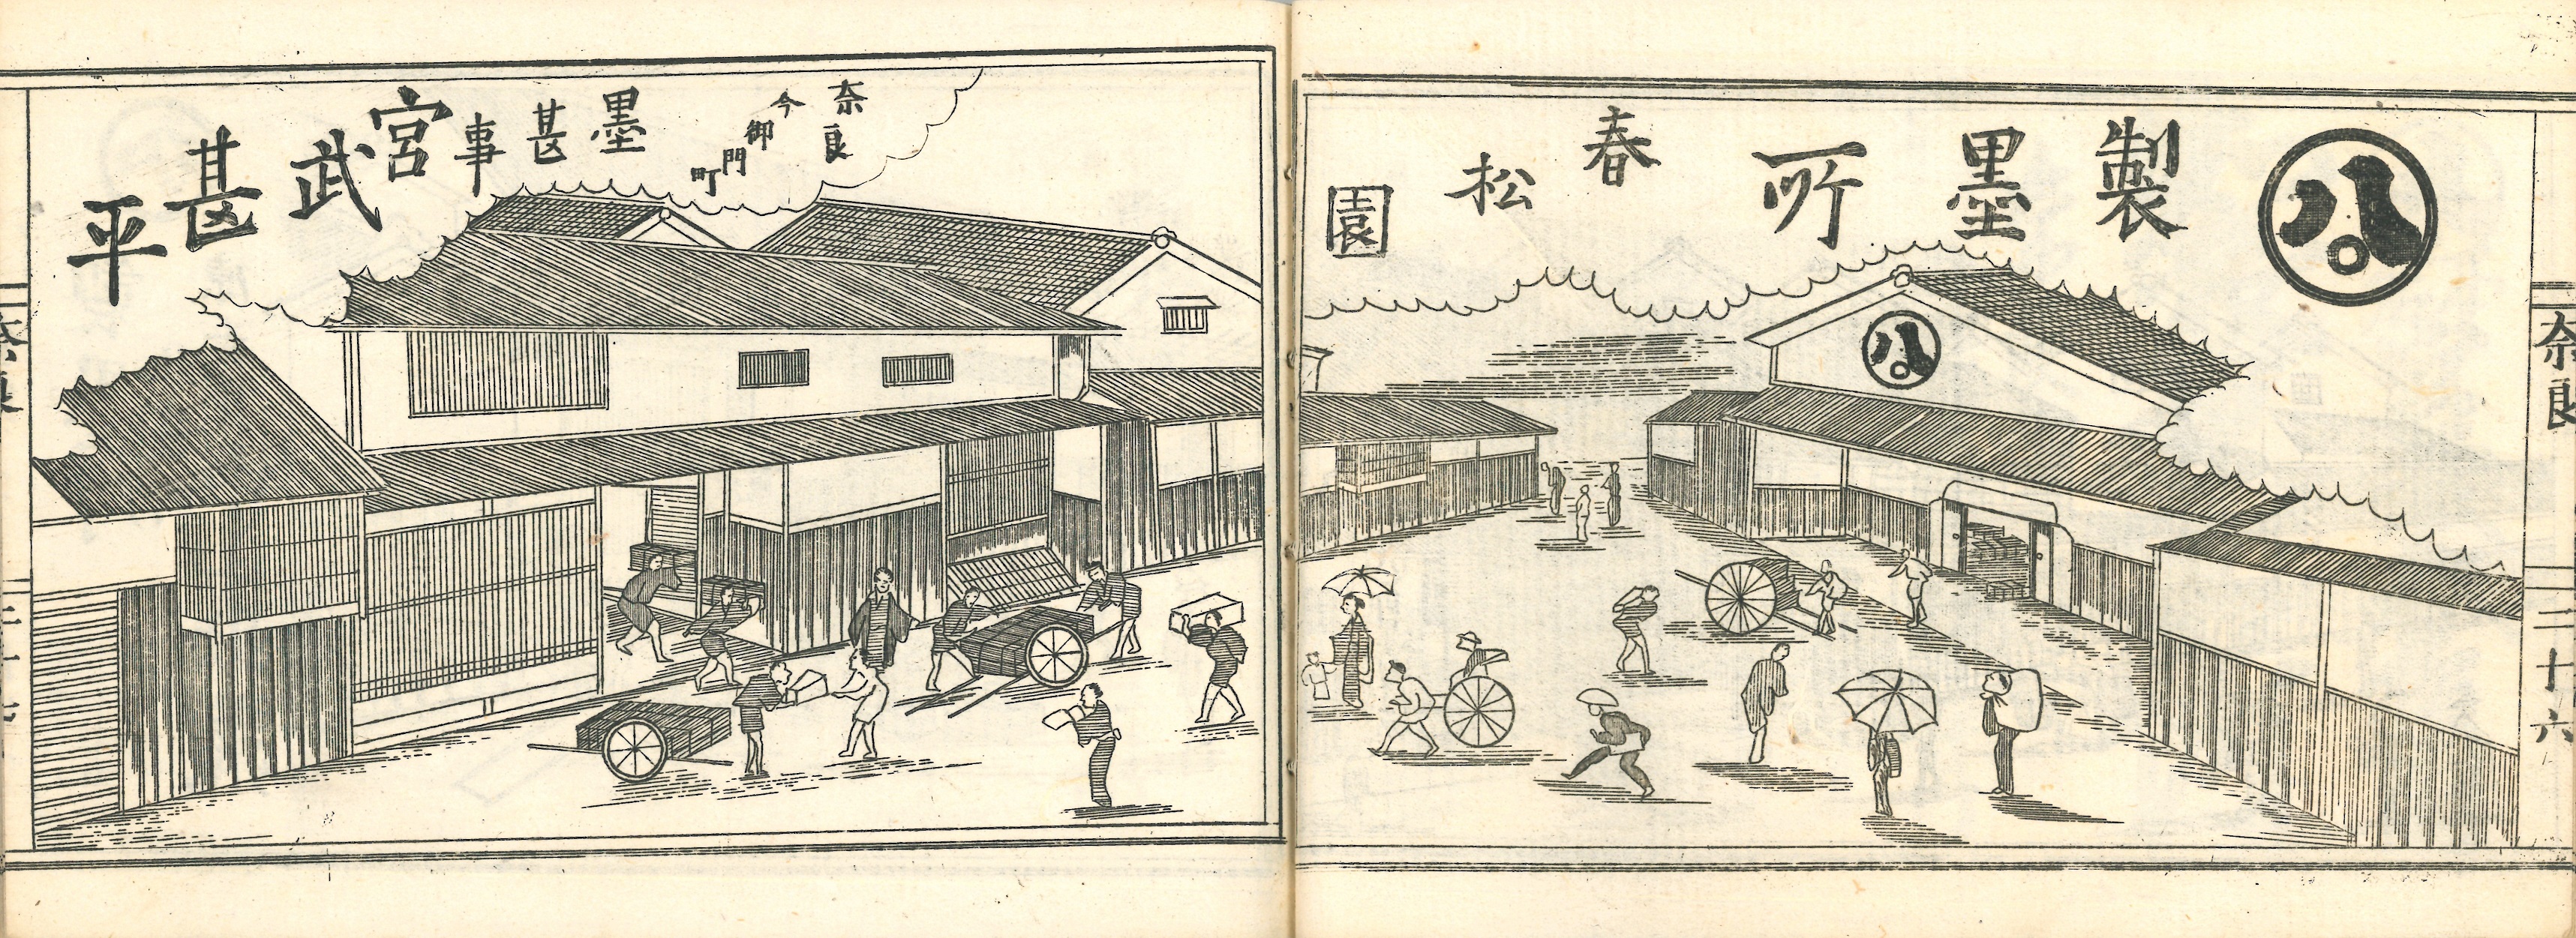 製墨所
春松園
奈良
今御門町
墨甚事
宮武甚平
奈良
二十六